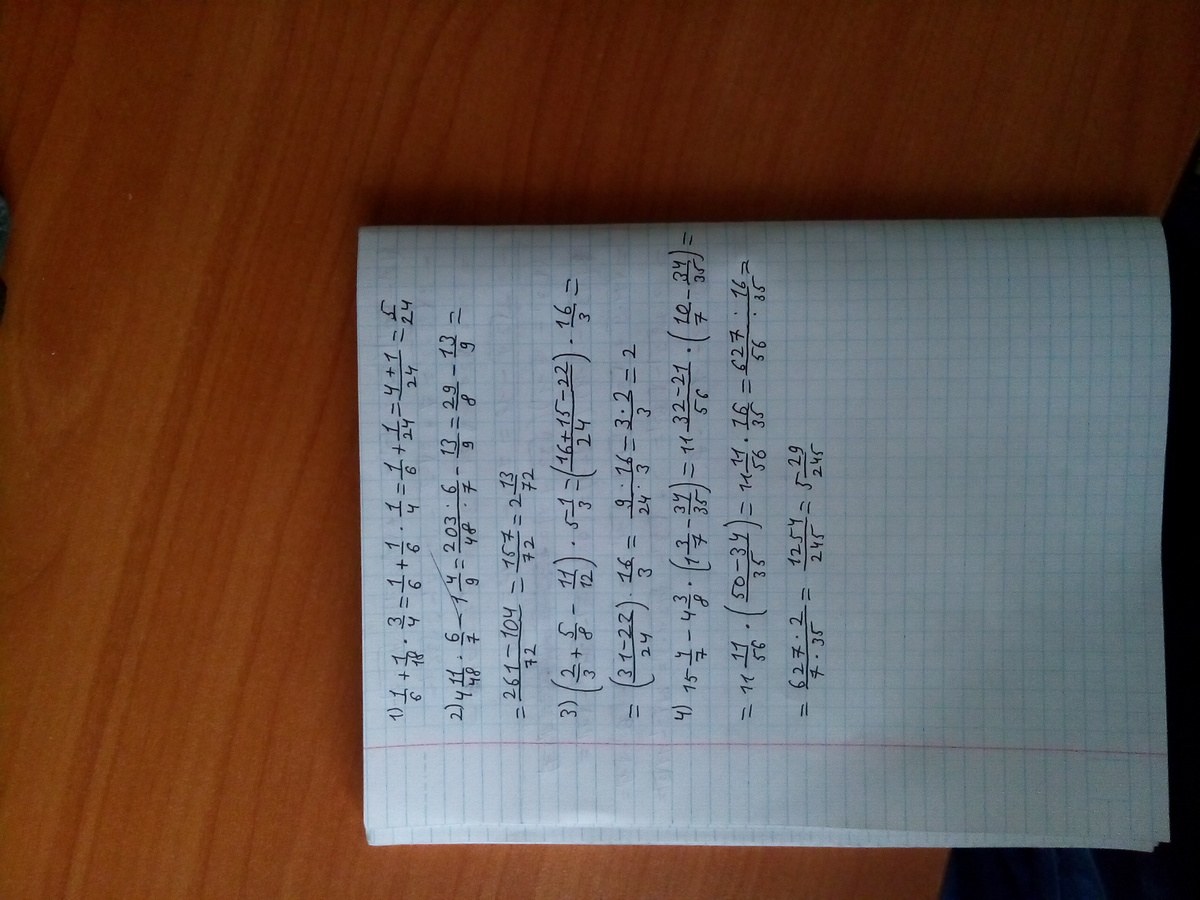 1) 1/6 + 1/18 · 3/4 = 1/6 + 1/6 · 1/4 = 1/6 + 1/24 = (4+1)/24 = 5/24
2) 4 11/48 · 6/7 - 1 4/9 = (203·6)/(48·7) - 13/9 = 29/8 - 13/9 =
= (261-104)/72 = 157/72 = 2 13/72
3) (2/3 + 5/8 - 11/12) · 5 1/3 = ((16+15-22)/24) · 16/3 =
= ((31-22)/24) · 16/3 = (9·16)/(24·3) = (3·2)/3 = 2
4) 15 4/7 - 4 3/8 · (1 3/7 - 34/35) = 11 (32-21)/56 · (10/7 - 34/35) =
= 11 11/56 · ((50-34)/35) = 11 11/56 · 16/35 = (627·16)/(56·35) =
= (627·2)/(7·35) = 1254/245 = 5 29/245